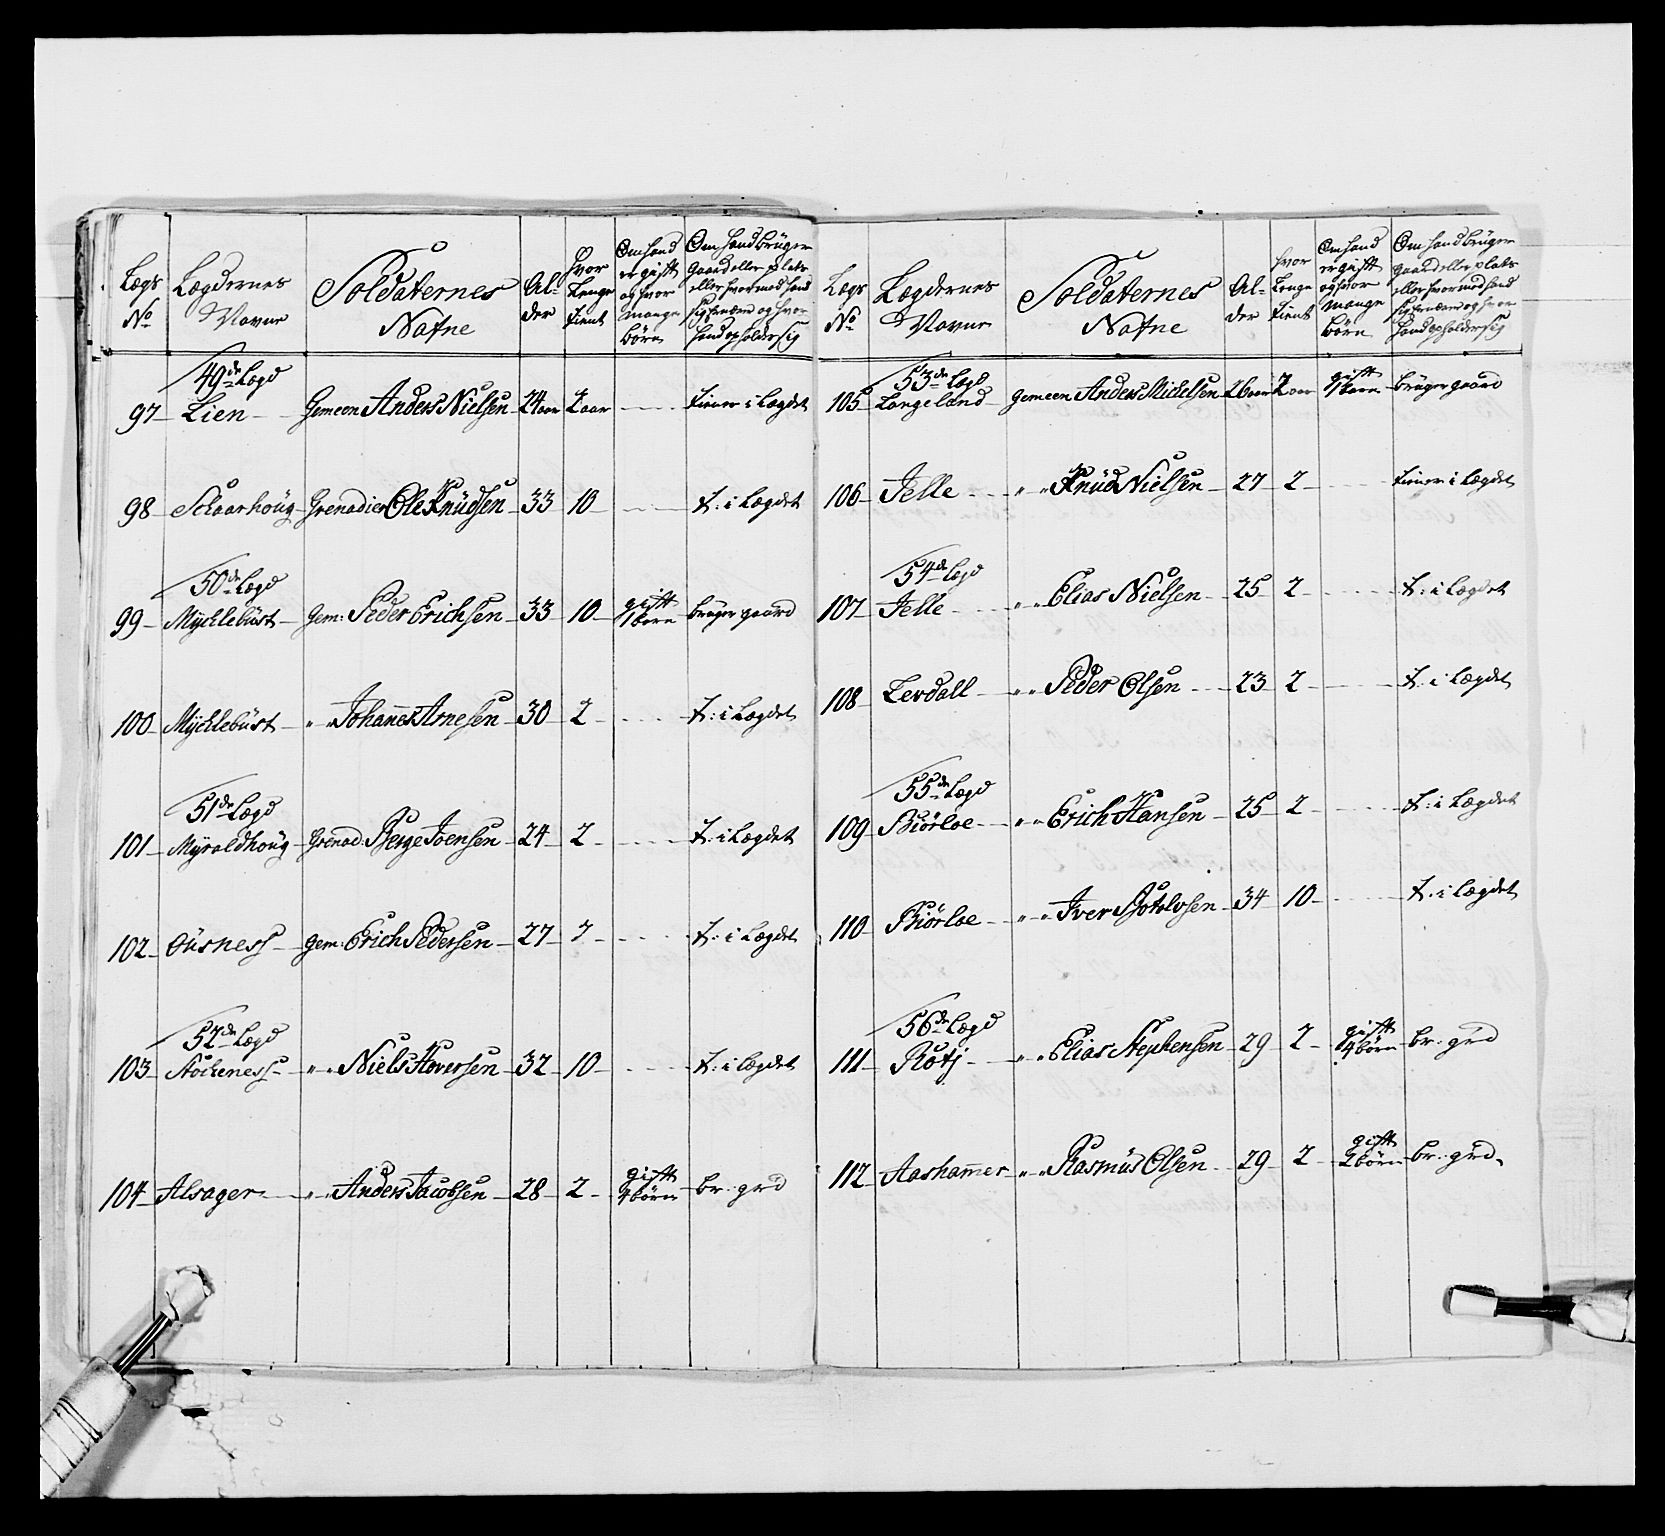 Lægs No
Lægdernes Navne
Soldaternes Nafne
Alder
Hvor Lenge tient
Om hand er gift og hvor mange börn
Om hand brüger gaard eller plads eller hvor med hand sig ernærer og hvor hand opholder sig
49de Lægd
97 Lien Gemeen Anders Nielsen 24 aar 2 aar tiener i Lægdet
98 Schaarhoüg Grenadier Ole Knüdsen 33 10 t: i Lægdet
50de Lægd
99 Mychlebüst Gem: Peder Erichsen 33 10 gift 1 barn brüger gaard
100 Mychlebüst " " Johannes Arnesen 30 2 t: i Lægdet
51de Lægd
101 Myroldhoüg Grenad: Børge Joensen 24 2 t: i Lægdet
102 Oüsness Gem: Erich Pedersen 27 7 t: i Lægdet
52de Lægd
103 Stöcheness " " Niels Hoversen 32 10 t: i Lægdet
104 Alsager " " Anders Jacobsen 28 2 gift 4 börn br: grd
Lægs No
Lægdernes Navne
Soldaternes Nafne
Alder
hvor Lenge tient
Om hand er gift og hvor mange börn
Om hand brüger gaard eller plads eller hvor med hand sig ernærer og hvor hand opholder sig
53de Lægd
105 Langeland Gemeen Anders Michelsen 26 aar 2 aar gift 1 barn brüger gaard
106 Jelle " " Knüd Nielsen 27 2 tiener i Lægdet
54de Lægd
107 Jelle " " Elias Nielsen 25 2 t: i Lægdet
108 Levdall " " Peder Olsen 23 2 t: i Lægdet
55de Lægd
109 Biörloe " " Erich Hansen 25 2 t: i Lægdet
110 Biörloe " " Iver Botolvsen 34 10 t: i Lægdet
56de Lægd
111 Rötj " " Elias Stephensen 29 2 gift 4 börn br: grd
112 Aashamer " " Rasmüs Olsen 29 2 gift 2 börn br: grd